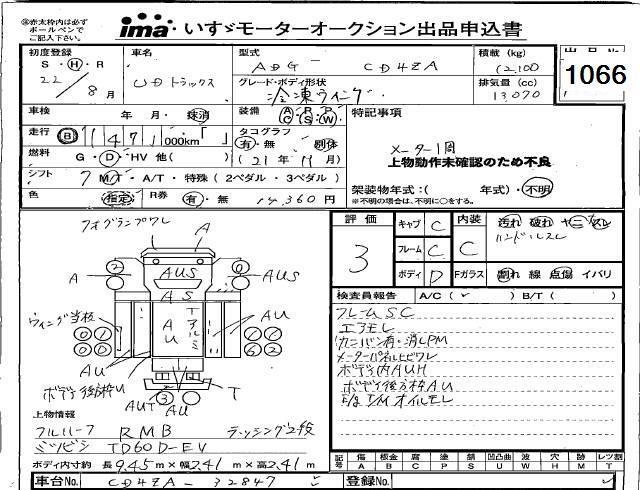 ㊟赤太枠内は必ず
ボールペンで
ご記入下さい。
ima いすゞモーターオークション出品申込書
出品No.
1066
初度登録 車名 型式 積載 (kg)
S・H・R UDトラックス ADG - CD4ZA 12,100
22/8月 グレード・ボディ形状 排気量 (cc)
冷凍ウイング 13,070
車検 年・月・抹消 装備 A・R・P
C・S・W 特記事項
走行 1471,000km「 」 タコグラフ メーター1周
有・無 別体 上物動作未確認のため不良
燃料 G・D・HV 他( ) (21年11月)
シフト 7 M/T・A/T・特殊(2ペダル・3ペダル) 架装物年式:( 年式)・不明
※不明の場合は、不明に○をする。
色 指定 R券 有・無 14,360円
フォグランプワレ
A
A AUS AUS
AS
ウィング当板
AU
アルミ
ボデー後方枠U
AUT AU AU T
評価 3
キャブ C 内装 C 汚れ 破れ ヤニ スレ
フレーム C ハンドルスレ
ボディ D Fガラス 割れ 線 点傷 イバリ
検査員報告 A/C( ) B/T( )
フレームSC
エアモレ
カニバン有・消しPM
メーターパネルヒビワレ
ボデー内AUH
ボデー後方枠AU
E/g T/M オイルモレ
上物情報
フルハーフ RMB ラッシング2段
ミツビシ TD60D-EV
ボディ内寸約 長9.45m×幅2.41m×高2.41m
記号 傷 A 板金 B 腐 C 塗 P 錆 S 凹凸曲 U 波 W 穴 H 跡 M レツ割 T
車台No. CD4ZA - 32847 登録No.